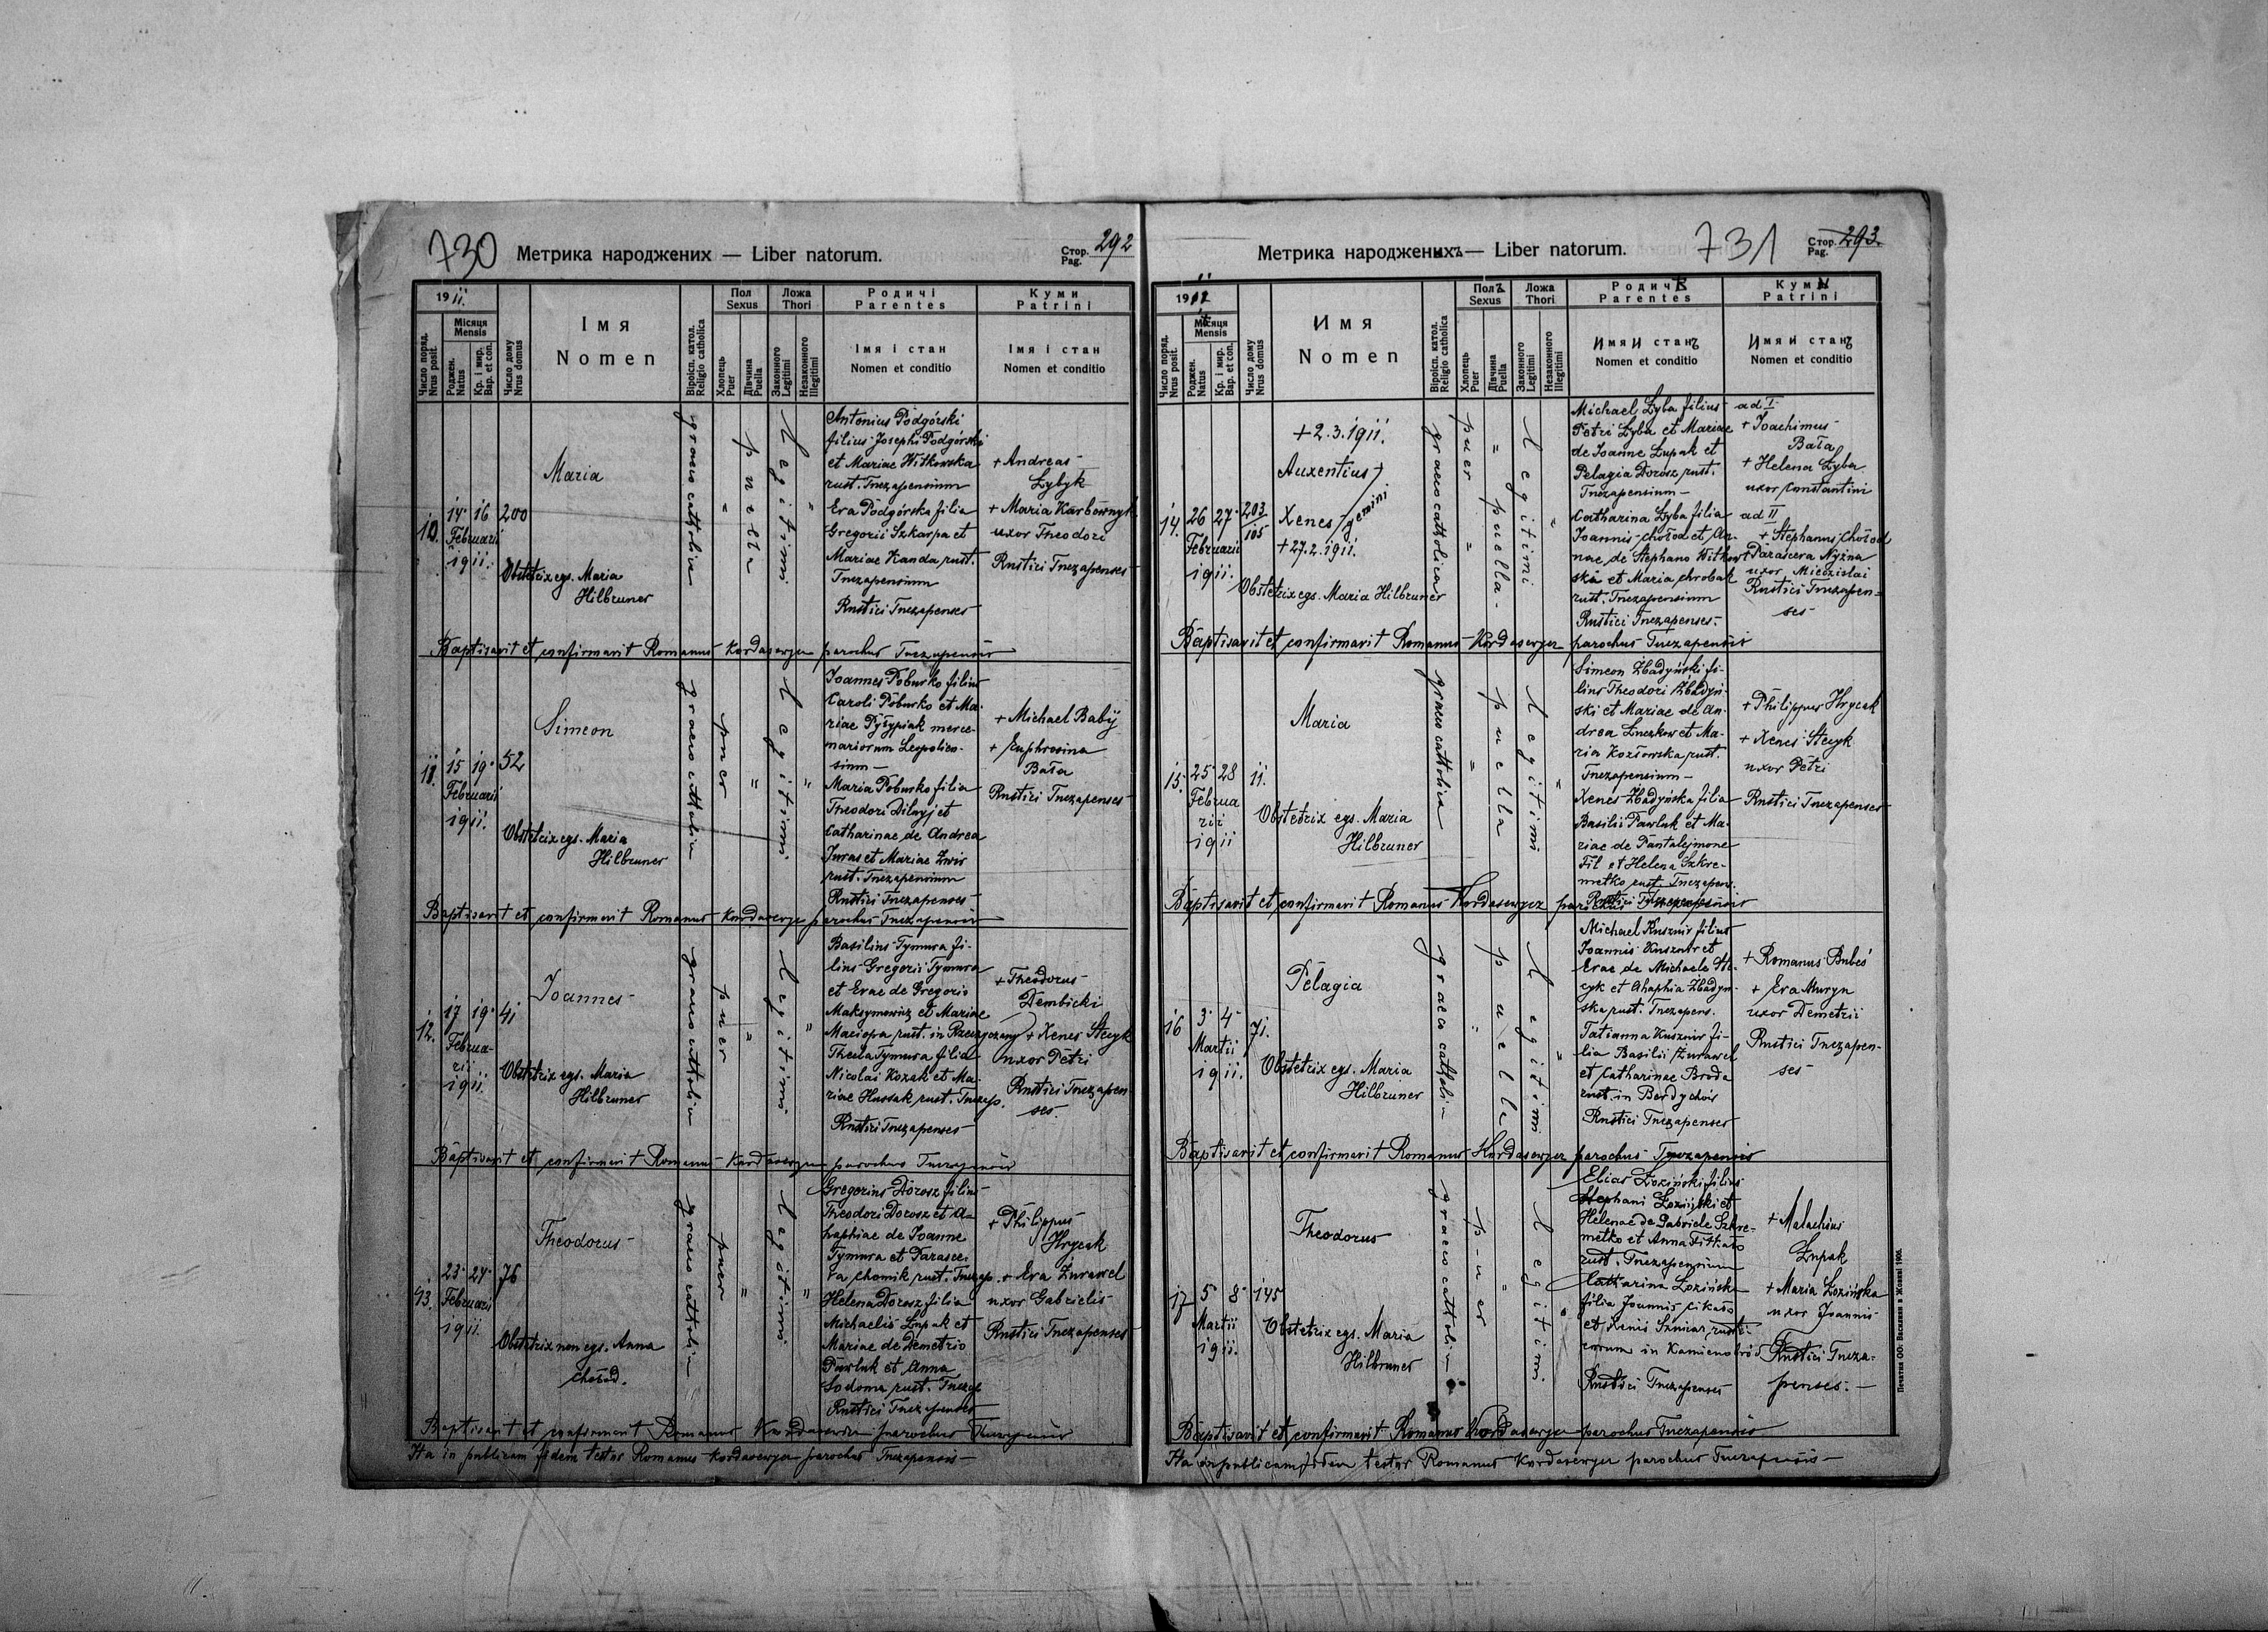 730 Метрика народжених — Liber natorum. Стор. Pag. 292
1911.
Число поряд. Nrus posit.
Місяця Mensis
Роджен. Natus
Кр. і мир. Bap. et con.
Число дому Nrus domus
Імя
Nomen
Віроісп. катол. Religio catholica
Пол Sexus
Хлопець Puer
Дївчина Puella
Ложа Thori
Законного Legitimi
Незаконного Illegitimi
Родичі Parentes
Імя і стан
Nomen et conditio
Куми Patrini
Імя і стан
Nomen et conditio
10.
14 16 200
Februarii
1911.
Maria
Obstetrix egs. Maria
Hilbruner
graeco catholica
puella
Legitimi
Antonius Podgórski
filius Josephi Podgórski
et Mariae Witkowska
rust. Tnezapensium
Eva Podgórska filia
Gregorii Szkarpa et
Mariae Kanda rust.
Tnezapensium
Rustici Tnezapenses
+ Andreas
Zybyk
+ Maria Karbownyk
uxor Theodori
Rustici Tnezapenses
Baptisavit et confirmavit Romanus Kordasewycz parochus Tnezapensis
11.
15 19 52
Februarii
1911.
Simeon
Obstetrix egs. Maria
Hilbruner
graeco catholica
puer
Legitimi
Joannes Poburko filius
Caroli Poburko et Ma-
riae Pyłypiak merce-
nariorum Leopolien-
sium
Maria Poburko filia
Theodori Dilnyj et
Catharinae de Andrea
Juras et Mariae Zwir
rust. Tnezapensium
Rustici Tnezapenses
+ Michael Babij
+ Euphrosina
Bała
Rustici Tnezapenses
Baptisavit et confirmavit Romanus Kordasewycz parochus Tnezapensis
12.
17 19 41
Februa-
rii
1911.
Joannes
Obstetrix egs. Maria
Hilbruner
graeco catholica
puer
Legitimi
Basilius Tymura fi-
lius Gregorii Tymura
et Evae de Gregorio
Maksymowicz et Mariae
Maciopa rust. in Rzeczyczany
Thecla Tymura filia
Nicolai Kozak et Ma-
riae Hussak rust. Tnezap.
Rustici Tnezapenses
+ Theodorus
Dembicki
+ Xenes Stecyk
uxor Petri
Rustici Tnezapen-
ses.
Baptisavit et confirmavit Romanus Kordasewycz parochus Tnezapensis
13.
23 24 76
Februarii
1911.
Theodorus
Obstetrix non egs. Anna
Chołod.
graeco catholica
puer
Legitimi
Gregorius Dorosz filius
Theodori Dorosz et A-
haphiae de Joanne
Tymura et Parasce-
va Chomik rust. Tnezap.
Helena Dorosz filia
Michaelis Łupak et
Mariae de Demetrio
Pawluk et Anna
Sodoma rust. Tnezap.
Rustici Tnezapenses
+ Philippus
Hrycak
+ Eva Żurawel
uxor Gabrielis
Rustici Tnezapenses
Baptisavit et confirmavit Romanus Kordasewycz parochus Tnezapensis
Ita in publicam fidem testor Romanus Kordasewycz parochus Tnezapensis
Метрика народженыхъ — Liber natorum. 731 Стор. Pag. 293.
1911
Число поряд. Nrus posit.
Місяця Mensis
Роджен. Natus
Кр. і мир. Bap. et con.
Число дому Nrus domus
Имя
Nomen
Віроісп. катол. Religio catholica
Полъ Sexus
Хлопець Puer
Дївчина Puella
Ложа Thori
Законного Legitimi
Незаконного Illegitimi
Родичѣ Parentes
Имя и станъ
Nomen et conditio
Кумы Patrini
Имя и станъ
Nomen et conditio
14.
26 27 203/105
Februarii
1911.
+2.3.1911.
Auxentius
Xenes gemini
+27.2.1911.
Obstetrix egs. Maria Hilbruner
graeco catholica
puer
puella
Legitimi
Michael Zyba filius
Petri Zyba et Mariae
de Joanne Łupak et
Pelagia Dorosz rust.
Tnezapensium
Catharina Zyba filia
Joannis Chołod et An-
nae de Stephano Witkow-
ski et Maria Chrobak
rust. Tnezapensium
Rustici Tnezapenses
ad I
+ Joachimus
Bała
+ Helena Zyba
uxor Constantini
ad II
+ Stephanus Chołod
+ Parasceva Nyżna
uxor Miecislai
Rustici Tnezapen-
ses
Baptisavit et confirmavit Romanus Kordasewycz parochus Tnezapensis
15.
25 28 11.
Februa
rii
1911
Maria
Obstetrix egs. Maria
Hilbruner
graeco catholica
puella
Legitimi
Simeon Zbadyński fi-
lius Theodori Zbadyń-
ski et Mariae de An-
drea Łuczkow et Ma-
ria Kozłowska rust.
Tnezapensium
Xenes Zbadyńska filia
Basilii Pawluk et Ma-
riae de Pantalejmone
Fil et Helena Szkre-
metko rust. Tnezapens.
Rustici Tnezapenses
+ Philippus Hrycak
+ Xenes Stecyk
uxor Petri
Rustici Tnezapenses
Baptisavit et confirmavit Romanus Kordasewycz parochus Tnezapensis
16
3 4 71.
Martii
1911.
Pelagia
Obstetrix egs. Maria
Hilbruner
graeco catholica
puella
Legitimi
Michael Kusznir filius
Joannis Kusznir et
Evae de Michaele Ste-
cyk et Ahaphia Zbadyn-
ska rust. Tnezapens.
Tatianna Kusznir fi-
lia Basilii Żurawel
et Catharinae Broda
rust. in Berdychów
Rustici Tnezapenses
+ Romanus Bubeś
+ Eva Muryn
uxor Demetrii
Rustici Tnezapen-
ses
Baptisavit et confirmavit Romanus Kordasewycz parochus Tnezapensis
17
5 8 145
Martii
1911.
Theodorus
Obstetrix egs. Maria
Hilbruner
graeco catholica
puer
Legitimi
Elias Łoziński filius
Stephani Łoziński et
Helenae de Gabriele Szkre-
metko et Anna
rust. Tnezapensium
Catharina Łozińska
filia Joannis Cikało
et Xenis rusti-
corum in Kamienobród
Rustici Tnezapenses
+ Malachius
Łupak
+ Maria Łozińska
uxor Joannis
Rustici Tneza-
penses.
Baptisavit et confirmavit Romanus Kordasewycz parochus Tnezapensis
Ita in publicam fidem testor Romanus Kordasewycz parochus Tnezapensis
Печатня ОО. Василиян в Жовкві 1906.